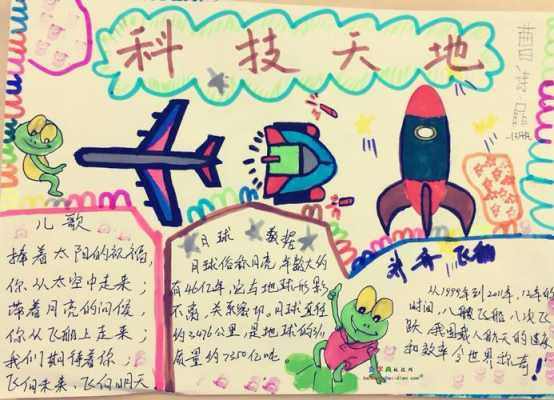 科技天地
儿歌
捧着太阳的祝福，
你从太空中走来；
带着月亮的问候，
你从飞船上走来；
我们期待着你；
飞向未来，飞向明天
月球 数据
月球俗称月亮，年龄大约
有46亿年，它与地球形影
不离，关系密切，月球直径
约3476公里，是地球的3/11
质量约7350亿吨
神舟飞船
从1999年到2011年，12年的
时间，八艘飞船，八次飞
跃，我国载人航天的速度
和效率令世界称奇！